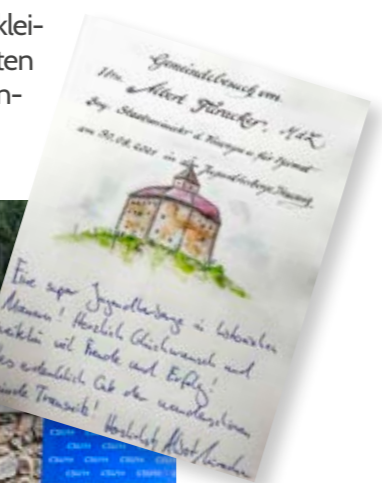 klei-
ten
n-
Gemeindebesuch von
Hrn. Albert Füracker, MdL
Bay. Staatsminister d. Finanzen u. für Heimat
am 30.08.2021 in die Jugendherberge
Eine super Jugendherberge in historischen
Mauern! Herzlich Glückwunsch und
weiterhin viel Freude und Erfolg!
es erdenklich Gute der wunderschönen
Herzlichst Albert Füracker